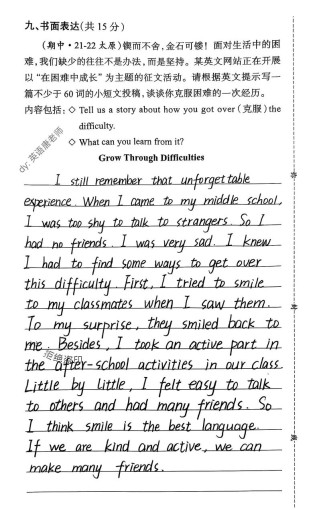 九、书面表达(共15分)
(期中·21-22太原)锲而不舍,金石可镂!面对生活中的困
难,我们缺少的往往不是办法,而是坚持。某英文网站正在开展
以“在困难中成长”为主题的征文活动。请根据英文提示写一
篇不少于60词的小短文投稿,谈谈你克服困难的一次经历。
内容包括:◇ Tell us a story about how you got over (克服) the
difficulty.
◇ What can you learn from it?
dy: 英语康老师
Grow Through Difficulties
I still remember that unforgettable
experience. When I came to my middle school,
I was too shy to talk to strangers. So I
had no friends. I was very sad. I knew
I had to find some ways to get over
this difficulty. First, I tried to smile
to my classmates when I saw them.
To my surprise, they smiled back to
me. Besides, I took an active part in
the after-school activities in our class.
Little by little, I felt easy to talk
to others and had many friends. So
I think smile is the best language.
If we are kind and active, we can
make many friends.